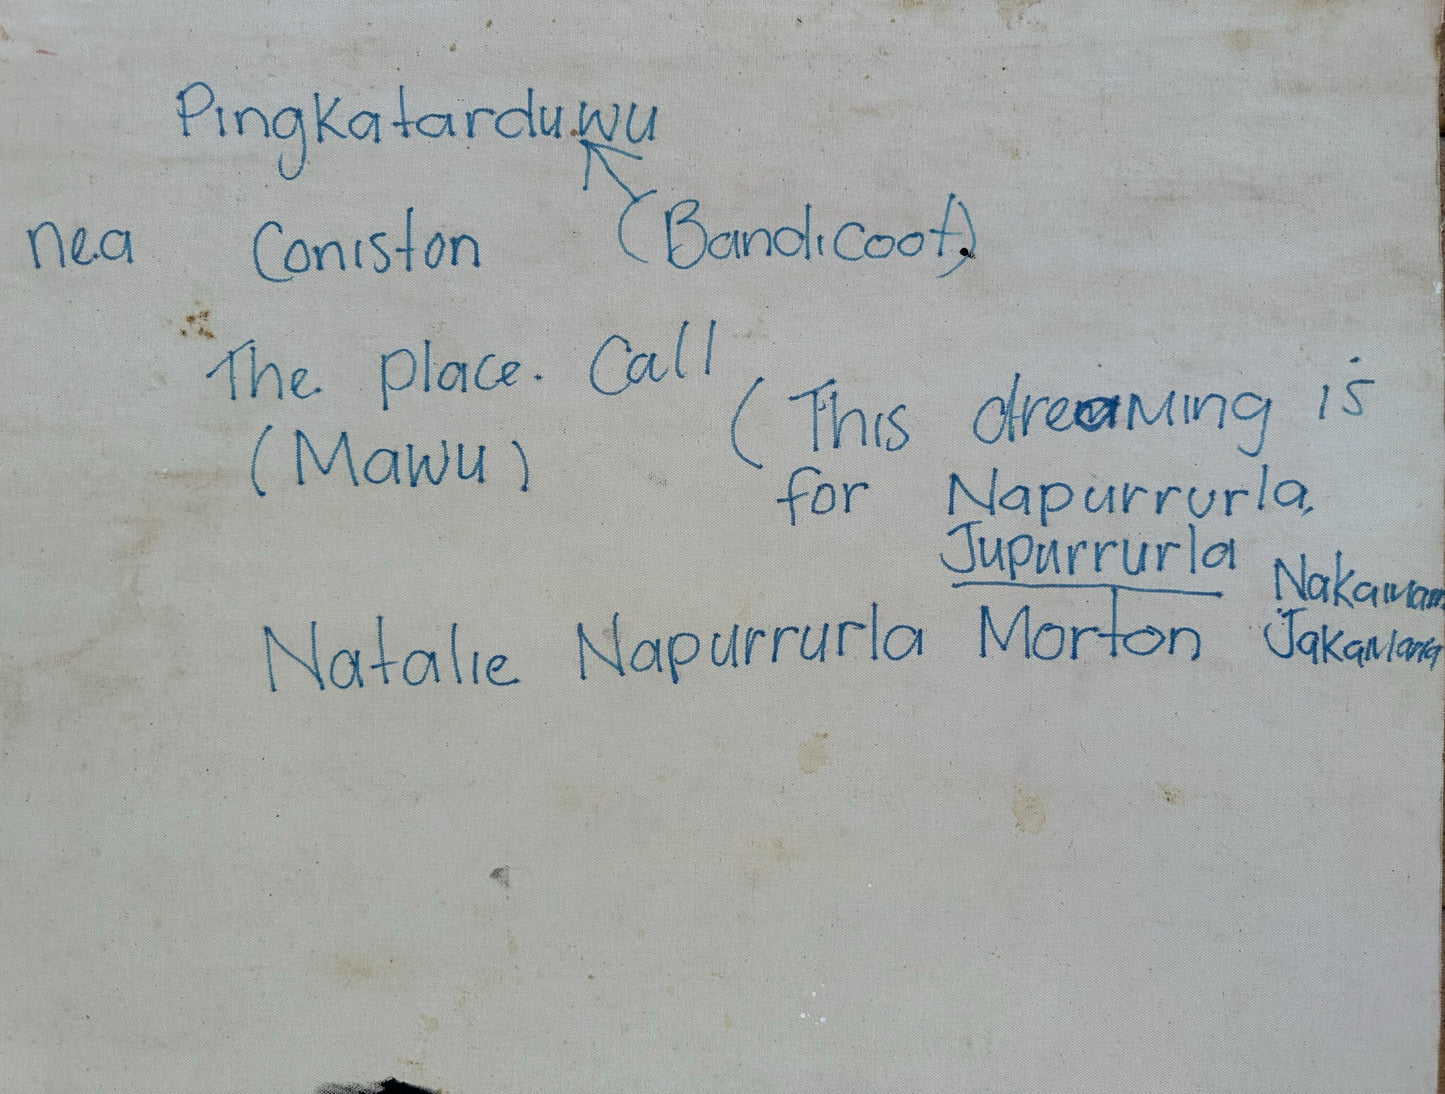 Pingkatarduwu
nea Coniston (Bandicoot).
The place. Call
(Mawu)
(This dreaming is
for Napurrurla,
Jupurrurla
Nakamarra
Jakamarra
Natalie Napurrurla Morton